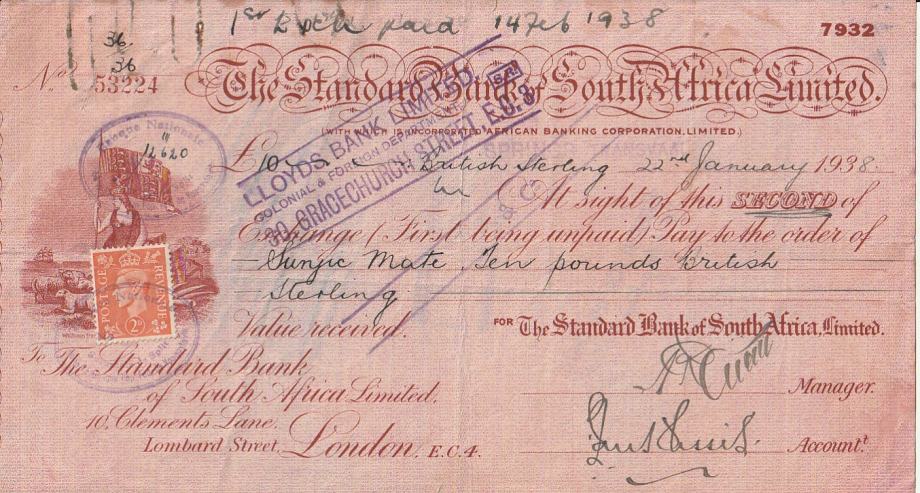 1st Exch paid 14 Feb 1938
7932
36
36
No. 53224
The Standard Bank of South Africa Limited.
(WITH WHICH IS INCORPORATED AFRICAN BANKING CORPORATION, LIMITED.)
LLOYDS BANK LIMITED.
COLONIAL & FOREIGN DEPARTMENT
S.A.
80, GRACECHURCH STREET, E.C.3
Banque Nationale
12620
£10 British Sterling 22nd January 1938.
At sight of this SECOND of
Exchange (First being unpaid) Pay to the order of
Sunjic Mate, Ten pounds British
Sterling
POSTAGE REVENUE
2D
Value received.
FOR The Standard Bank of South Africa, Limited.
To The Standard Bank
of South Africa Limited.
Manager.
10, Clements Lane,
Lombard Street, London, E.C.4.
Accountt.